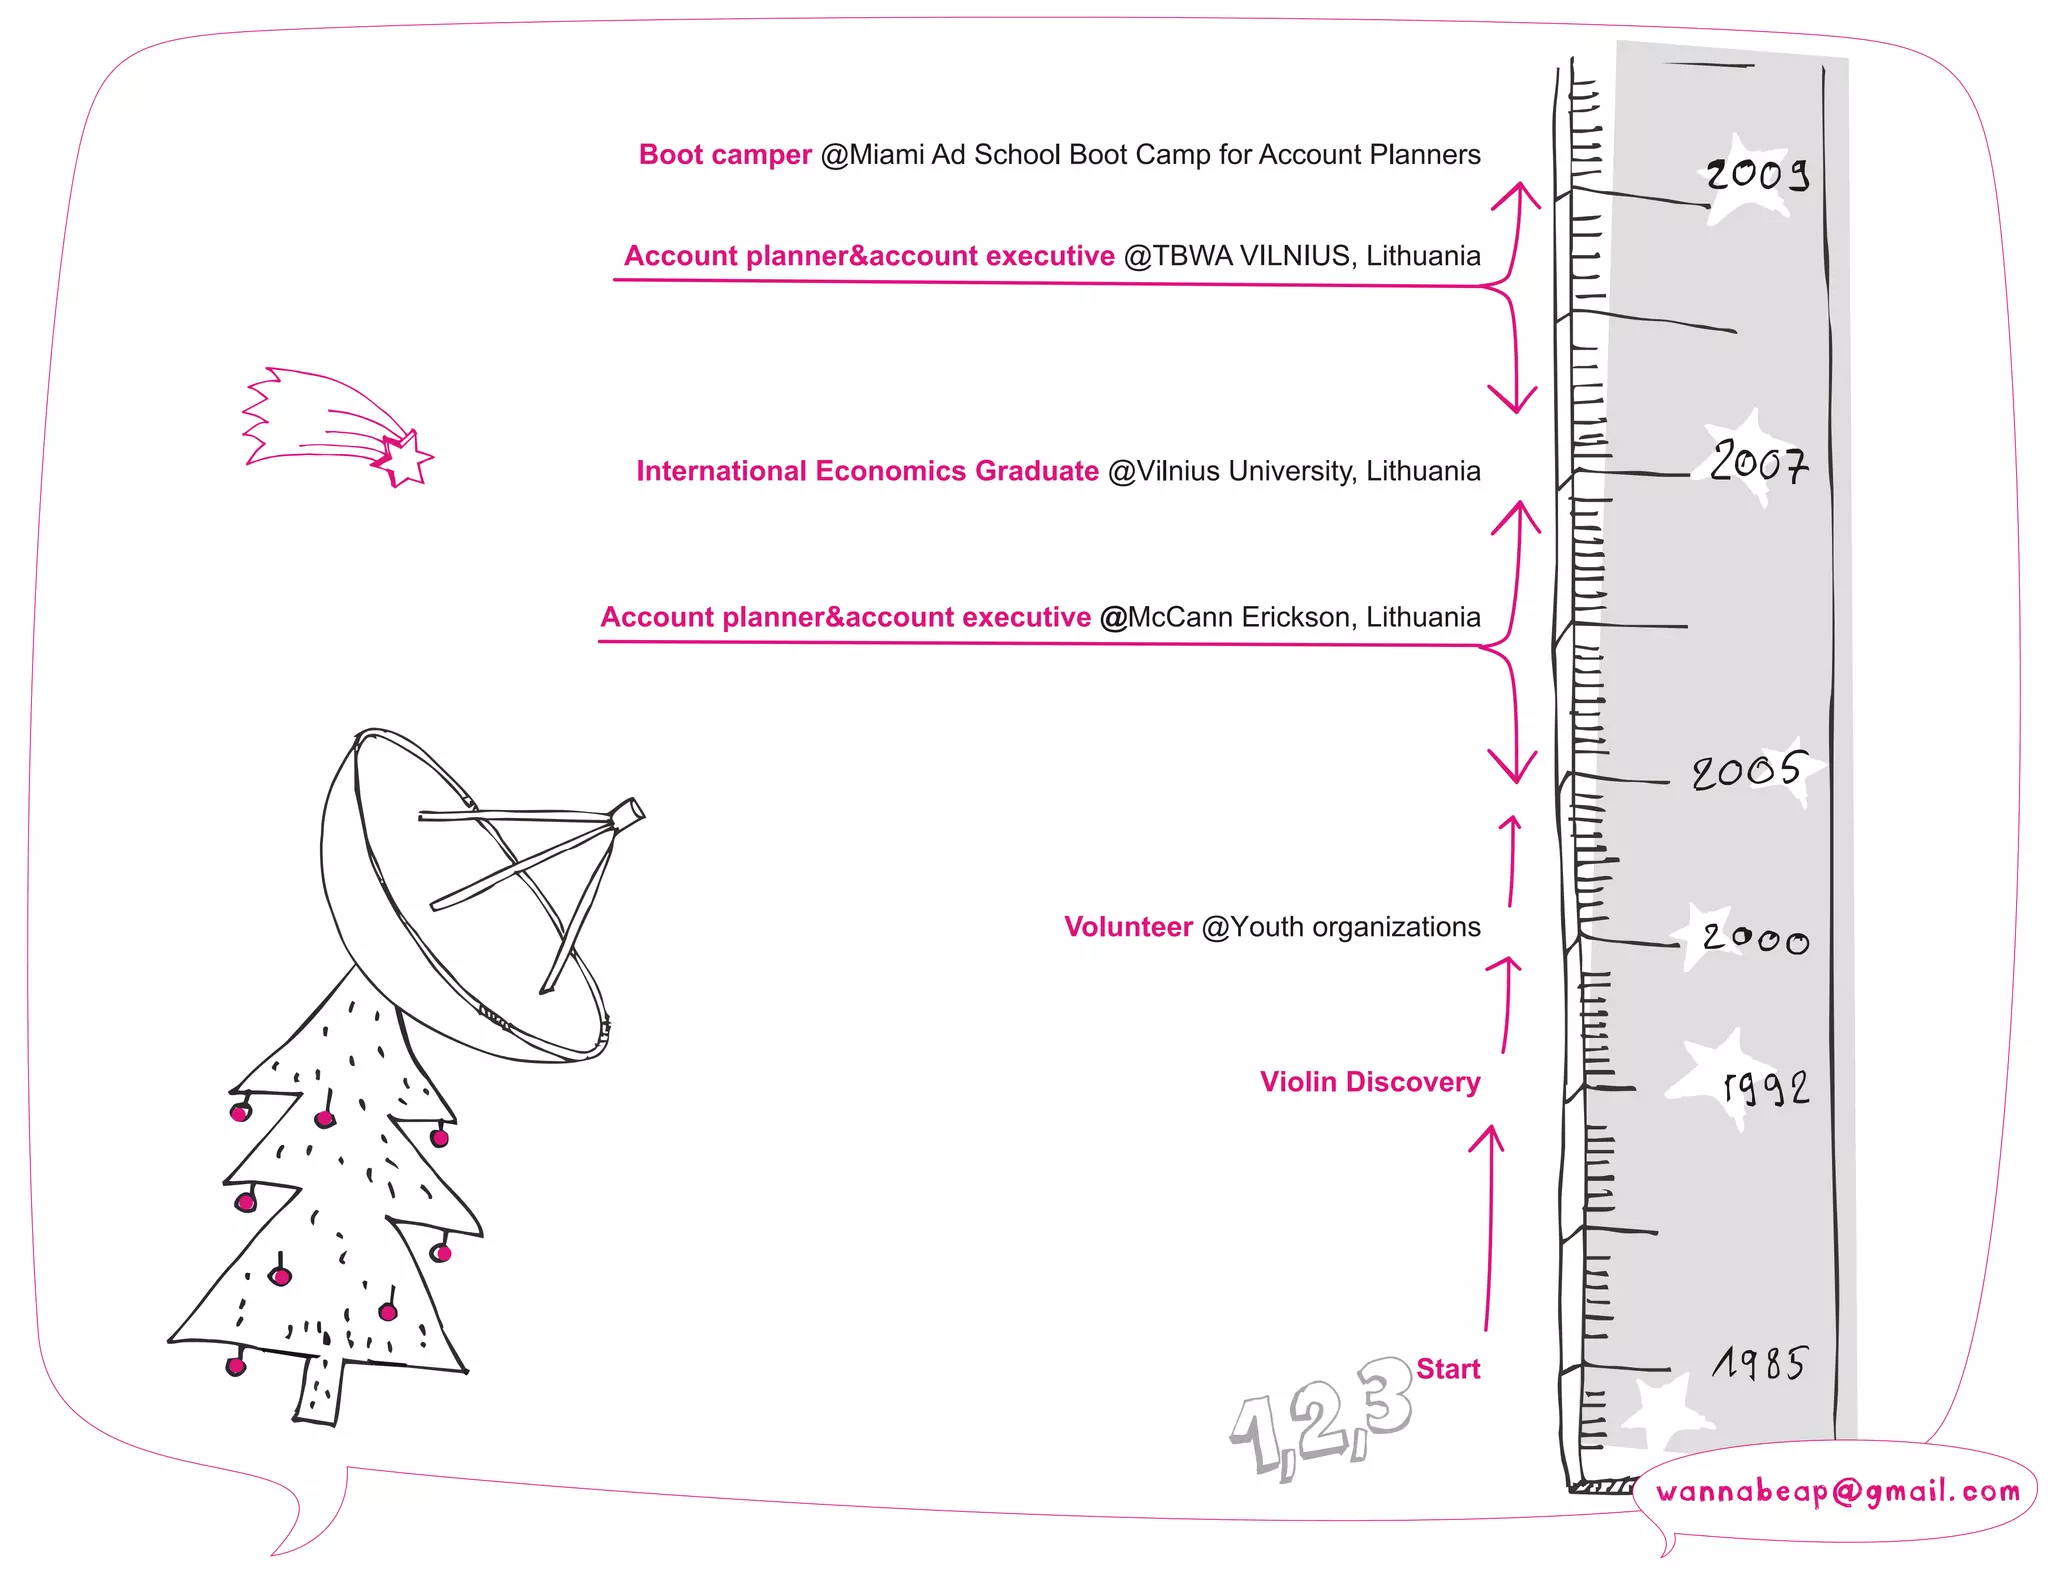 Boot camper @Miami Ad School Boot Camp for Account Planners
2009
Account planner&account executive @TBWA VILNIUS, Lithuania
International Economics Graduate @Vilnius University, Lithuania
2007
Account planner&account executive @McCann Erickson, Lithuania
2005
Volunteer @Youth organizations
2000
Violin Discovery
1992
Start
1985
1,2,3
wannabeap@gmail.com